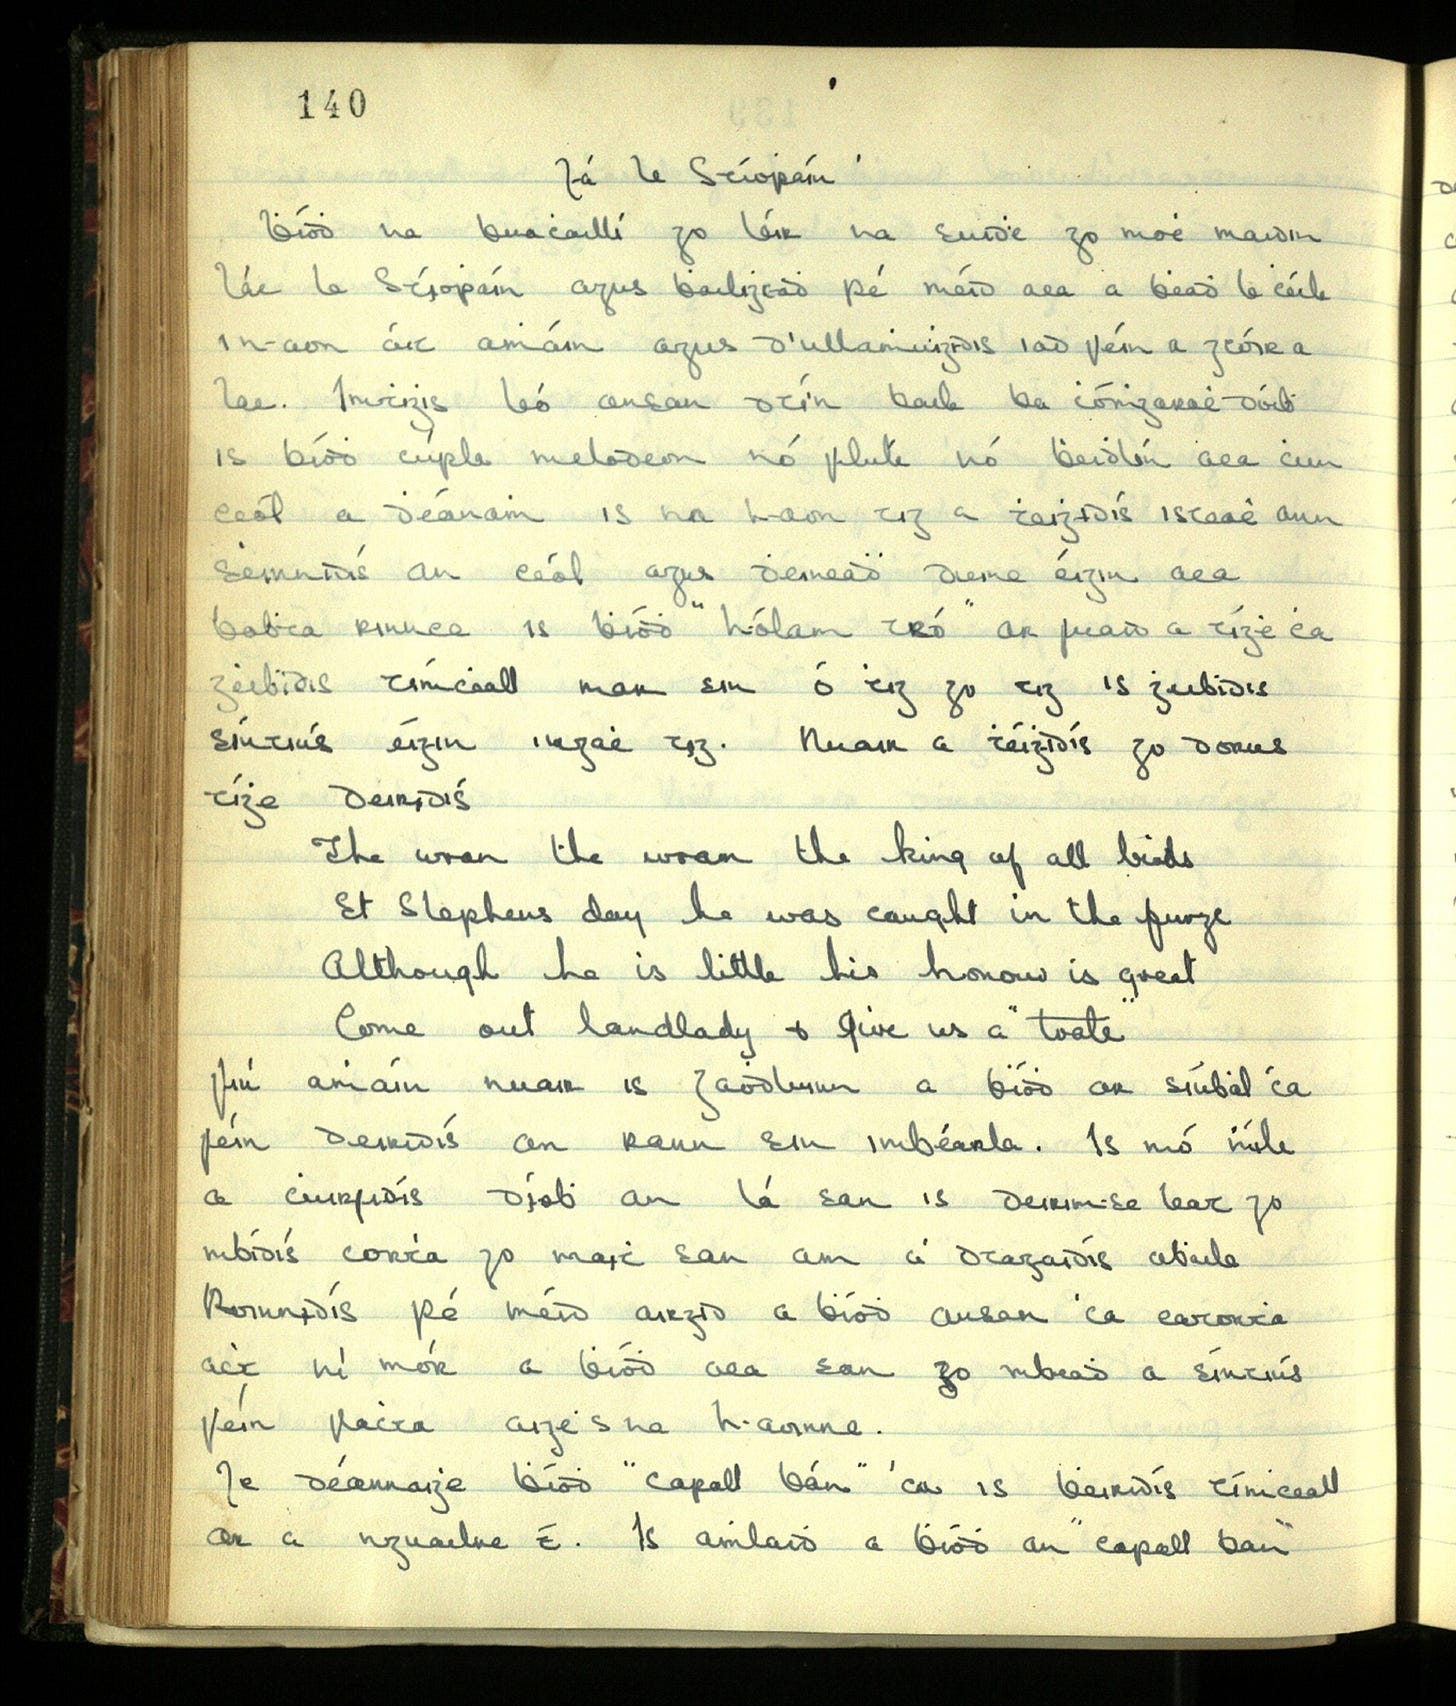 140
Lá le Stíopáin
Bíoḋ na buaċaillí go léir na suiḋe go moċ maidin
Láe le Stíopáin agus bailiġeaḋ pé méid aca a beaḋ le ċéile
in-aon áit aṁáin agus d'ullaṁuiġidís iad féin a gcóir a
lae. Imtiġis leó ansan dtí'n baile ba ċóṁgaraċ dóib
is bíoḋ cúpla melodeon nó flute nó ḃeidlín aca ċun
ceól a ḋéanaṁ is na h-aon tiġ a téiġidís isteaċ ann
ṡeinnidís an ceól agus ḋeineaḋ duine éigin aca
babta rinnce is bíoḋ "hólam tró" ar fuaid a tíġe ċa
ġeibidís tímċeall mar sin ó tiġ go tiġ is ġeibidís
síntiús éigin ingaċ tiġ. Nuair a téiġidís go dorus
tíġe deiridís
The wran the wran the king of all birds
St Stephens day he was caught in the furze
Although he is little his honour is great
Come out landlady & give us a "trate"
Fiú aṁáin nuair is Gaoḋluinn a ḃíoḋ ar siúbal ċa
féin deiridís an rann sin imbéarla. Is mó ṁíle
a ċuirfidís díob an lá san is deirim-se leat go
mbídís corta go maiṫ san am a dtagaidís abaile
Roinnidís pé méid airgid a ḃíoḋ ansan ċa eatorta
aċt ní mór a ḃíoḋ aca san go mbeaḋ a síntiús
féin facta aige 's na h-aoinne.
Le déannaiġe ḃíoḋ "capall bán" ċu is ḃeiridís tímceall
ar a nguailne é. Is aṁlaid a ḃíoḋ an "capall ban"